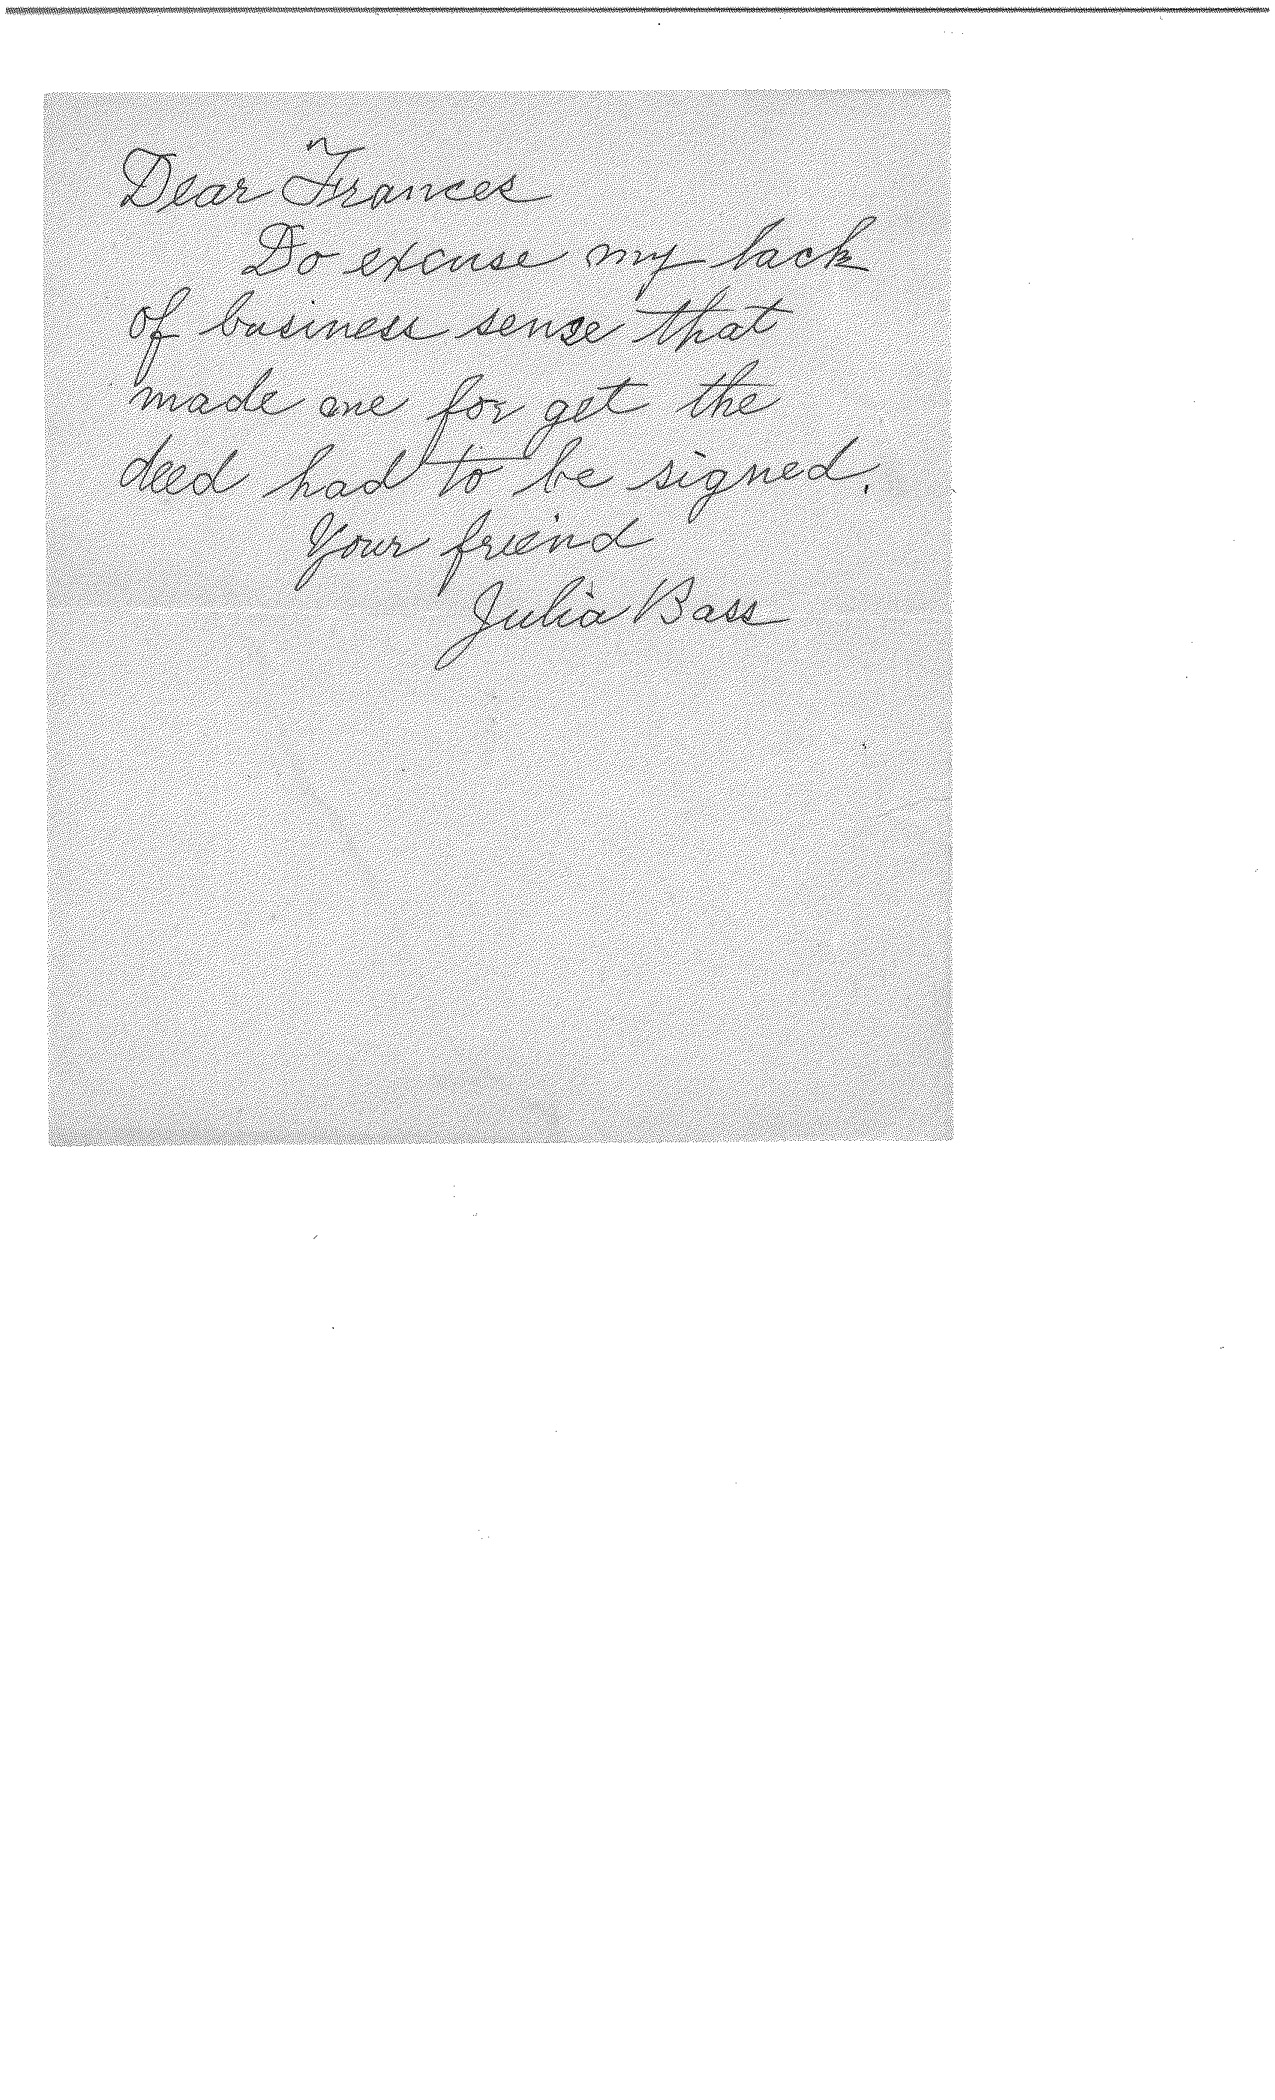 Dear Frances
Do excuse my lack
of business sense that
made me for get the
deed had to be signed.
Your friend
Julia Bass